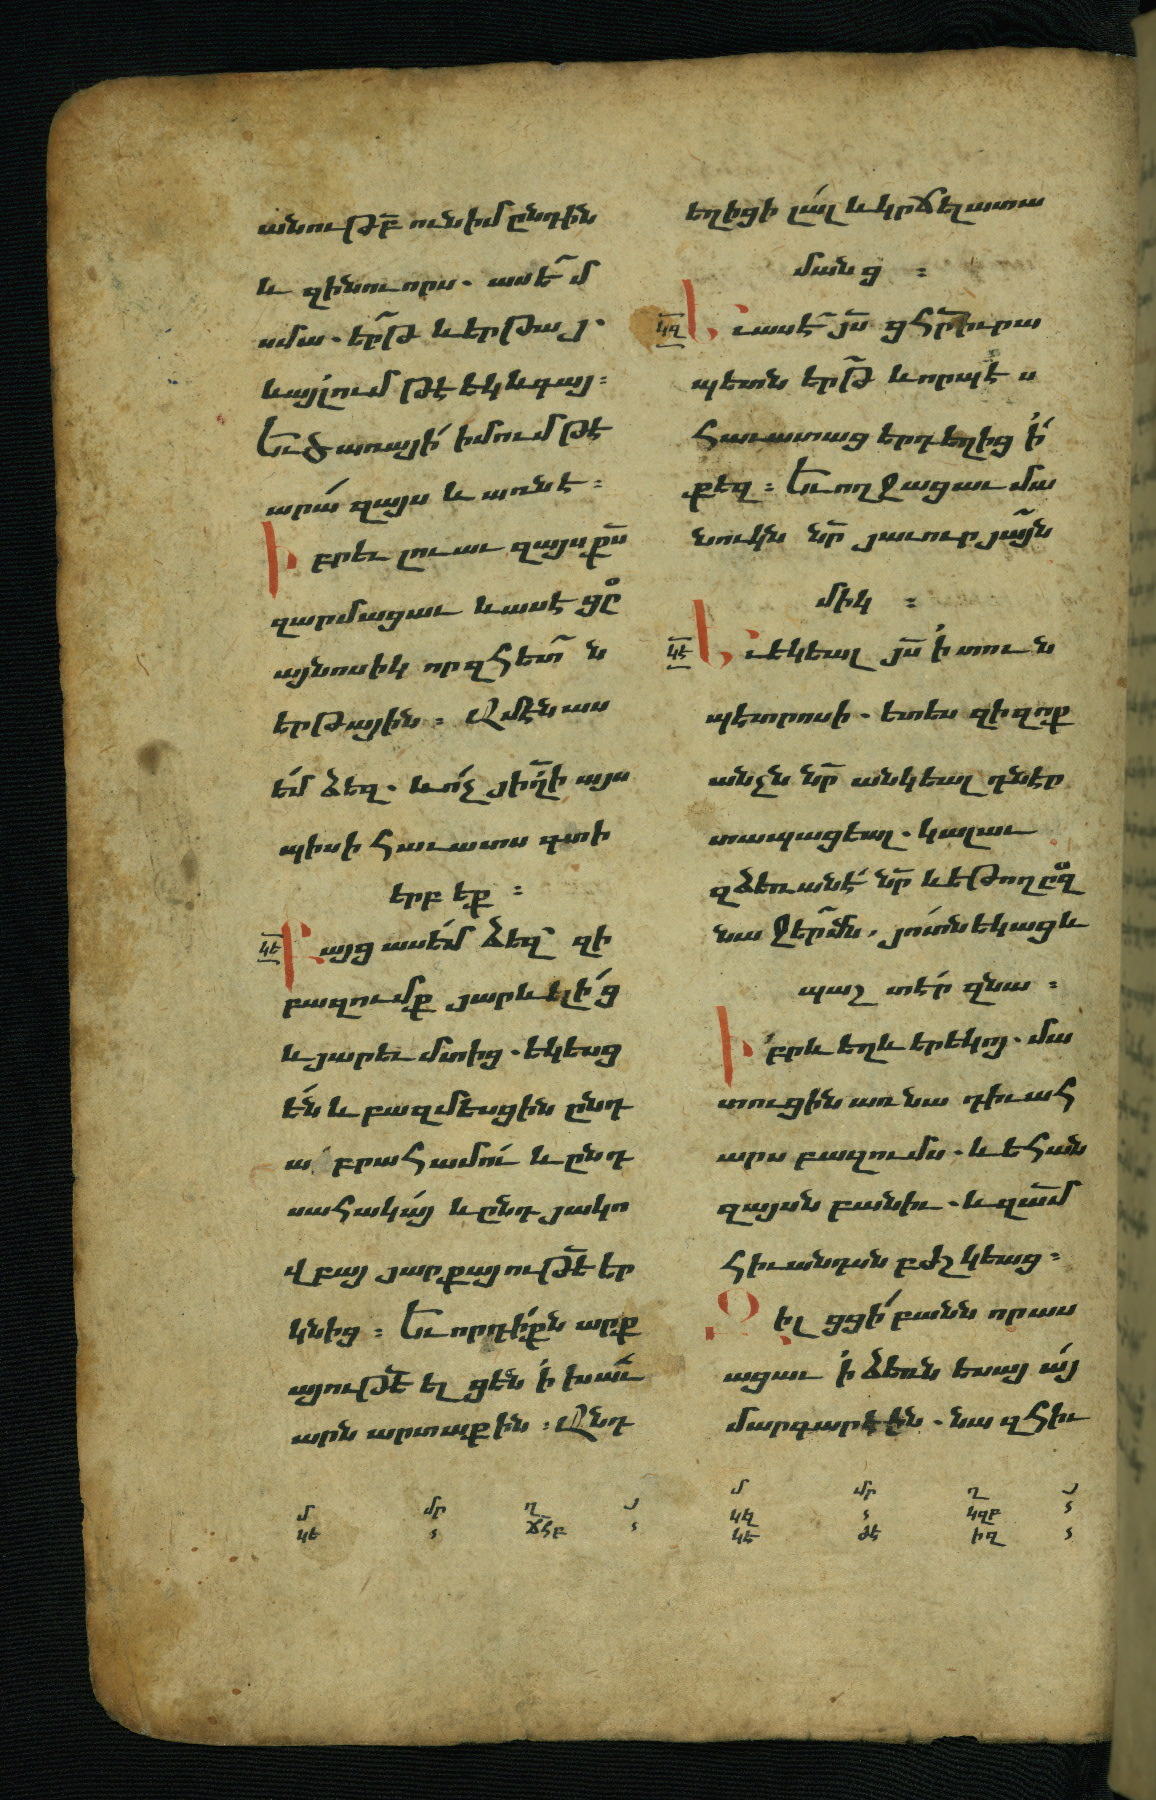 անուԹԲ̅ ունիմ ընդին
և զինուորս. ասե՞մ
սմա. ե՞րԹ և երԹայ.
և այլում Թէ եկ և գայ։
Եւ ծառայի՛ իմում Թէ
արա՛ զայս և առնէ։
Իբրեւ լուաւ զայս յ̅ս
զարմացաւ և ասէ ցը̊
այնոսիկ որ զհետ ն
երԹային։ Ամէն աս
ե՛մ ձեզ. և ո՛չ յի̅ղի այս
պիսի հաւատս գտի
երբ եք։
կե̅ Բայց ասե՛մ ձեզ զի
բազումք յարևելի՛ց
և յարեւմտից. եկեսց
ե՛ն և բազմեսցին ընդ
աբրահամու՛ և ընդ
սահակա՛յ և ընդ յակո
վբայ յարքայուԹե̅ եր
կնից։ Եւ որդի՛քն արք
այուԹե̅ ելցեն ի՛ խաւ
արն արտաքին։ Անդ
եղիցի լա՛լ և կրճել ատա
մանց։
կզ̅ Եւ ասէ յ̅ս ցհրիւրա
պետն ե՞րԹ և որպէս
հաւատաց երդ եղից ի՛
քեզ։ Եւ ողջացաւ մա
նուկն նր̅ յաւուր յայն
միկ։
կէ̅ Եւ եկեալ յ̅ս ի՛ տուն
պետրոսի. ետես զի զոք
անչն նր̅ անկեալ դնէր
տապացեալ. կալաւ
զձեռանէ՛ նր̅ և եԹող ը̊զ
նա ջերմն, յո՛տն եկաց և
պաշտէ՛ր զնա։
Իբրև եղև երեկոյ. մա
տուցին առ նա դիւահ
արս բազումս. և եհան
զայսն բանիւ. և զա̅մ
հիւանդսն բժշկեաց։
Զի լցցի՛ բանն որ աս
ացաւ ի՛ ձեռն եսայա՛յ
մարգարէին. նա զհիւ
մ մր ղ յ
կե ՟ ՃՀբ ՟
մ մր ղ յ
կզ ՟ կզբ ՟
կէ ժէ իզ ՟